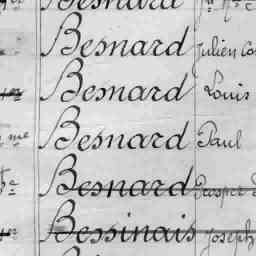 Besnard
Besnard Julien
Besnard Louis
me Besnard Paul
Besnard Gaspar
Bessinais Joseph